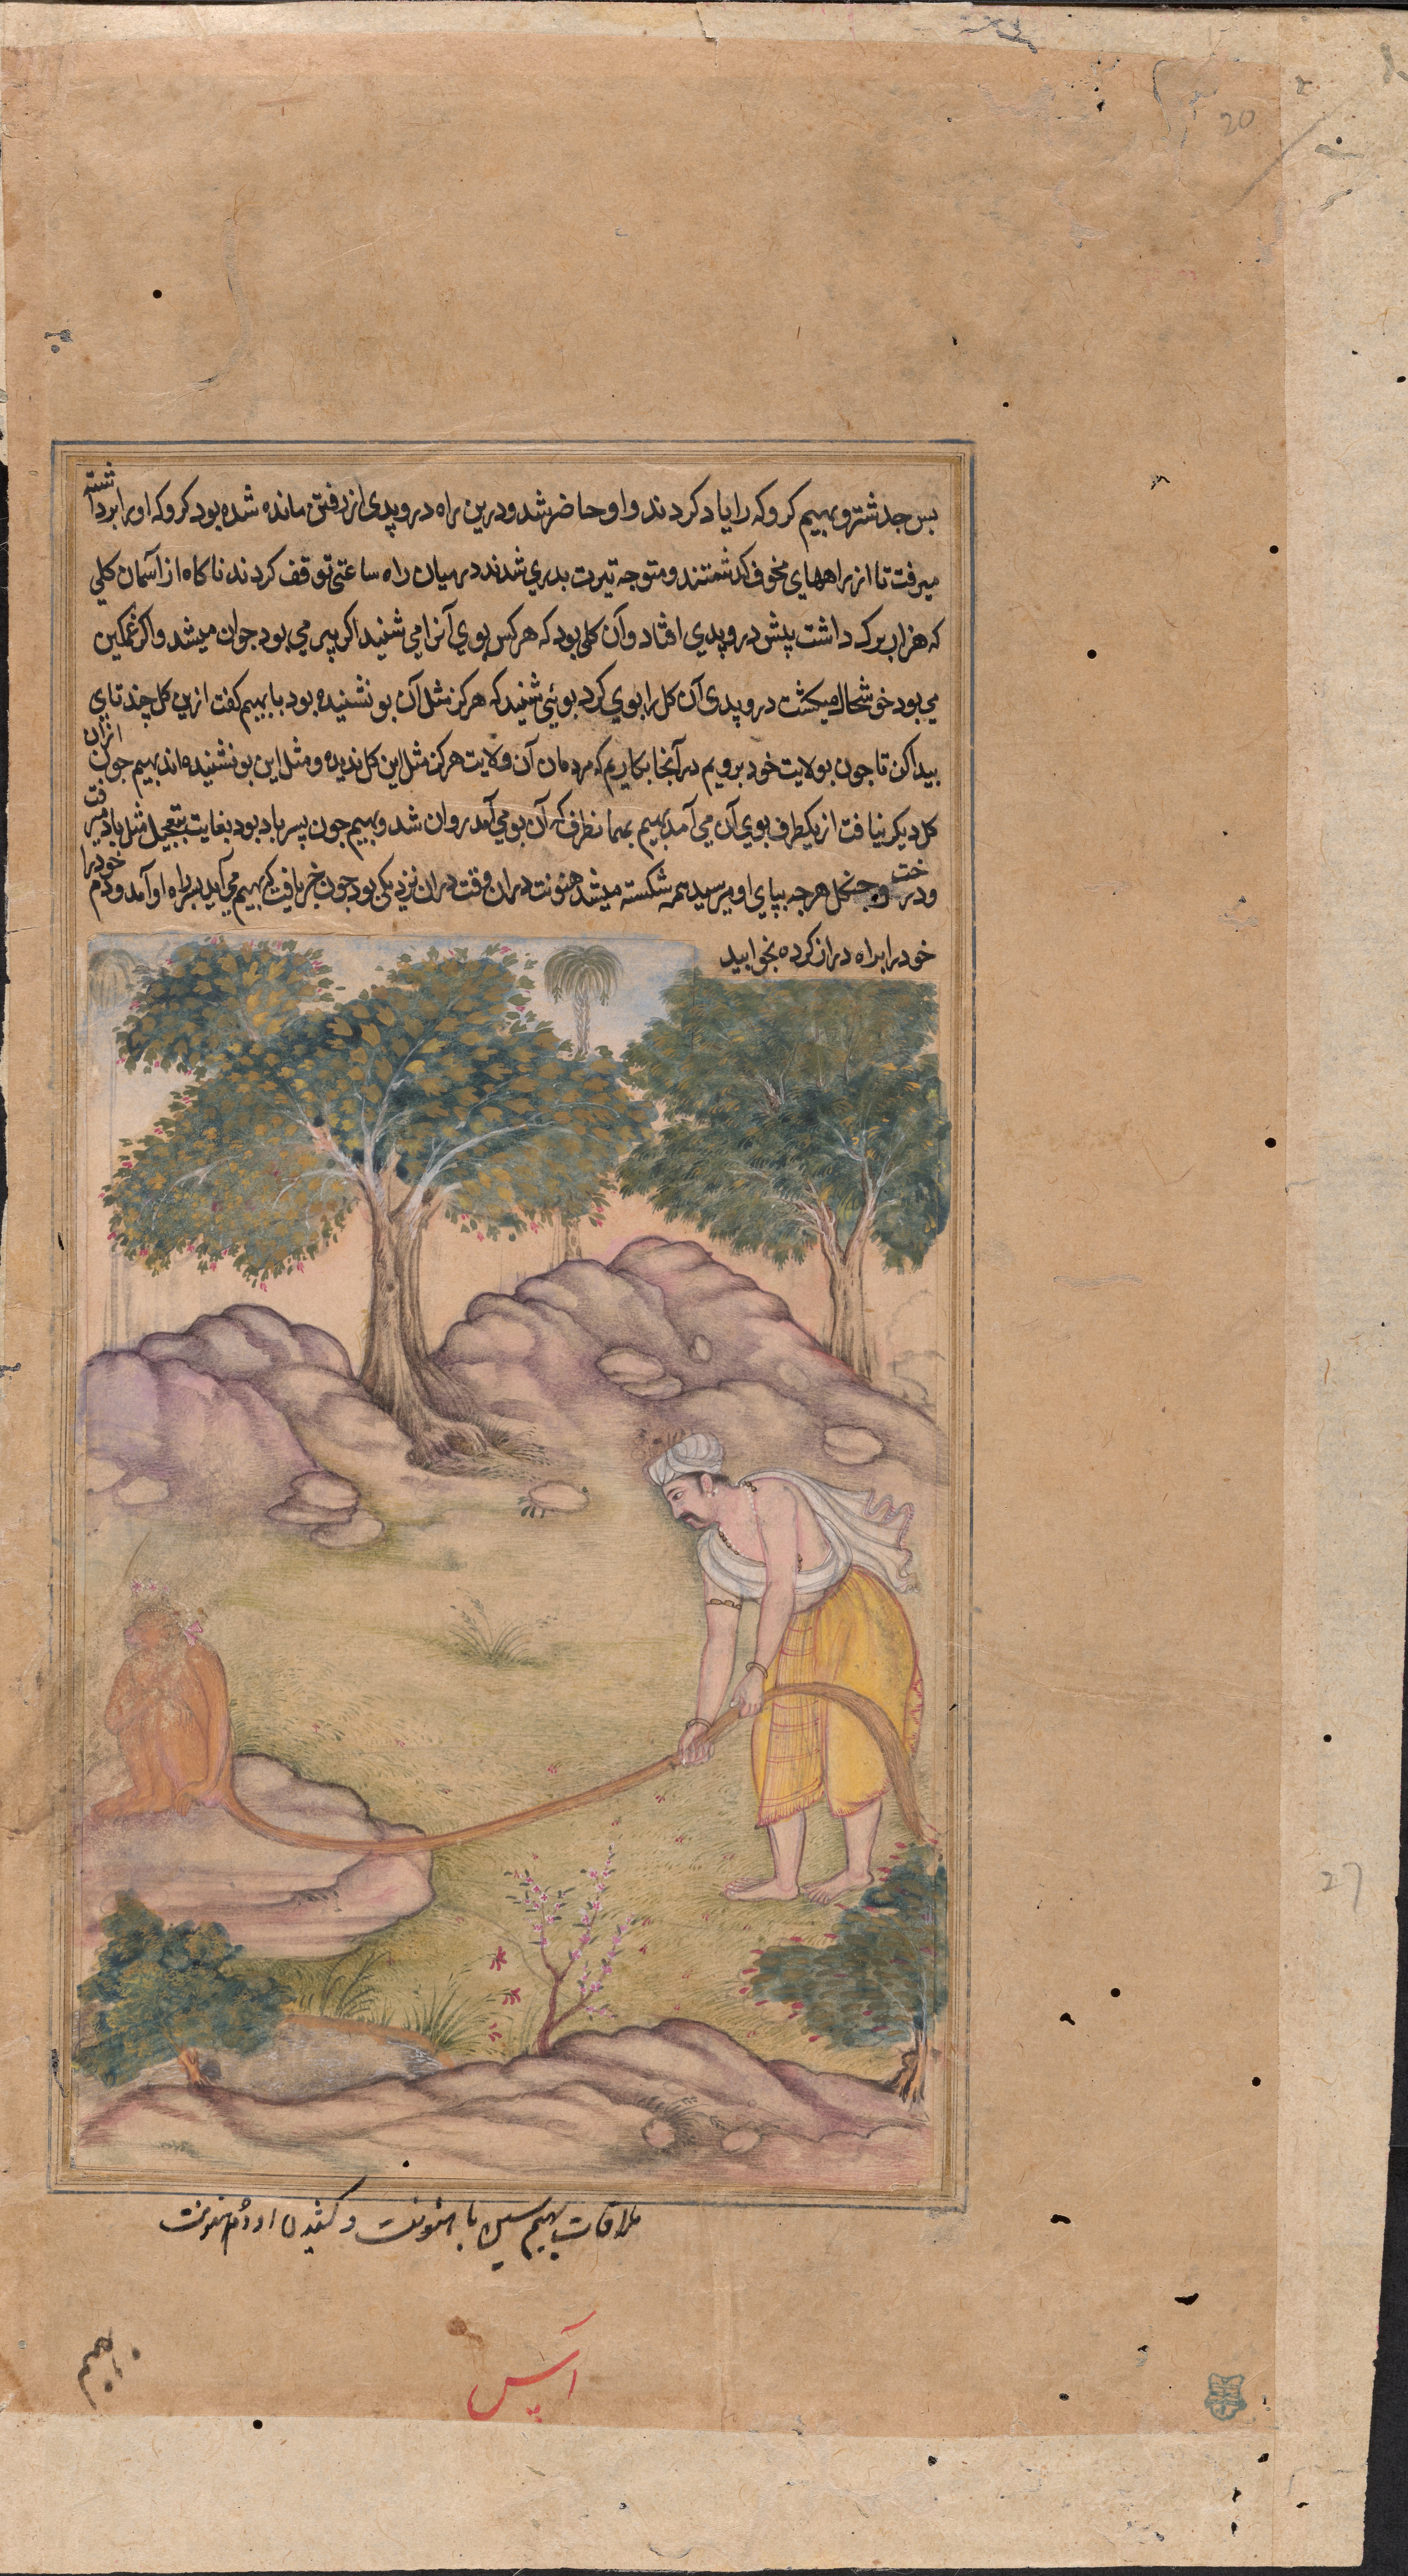 20
بس جدشتر و بهیم کروکه را یاد کردند و او حاضر شد و درین راه دروپدی از رفتن مانده شده بود کروکه او را برداشته
میرفت تا از راههای مخوف کذشتند و متوجه تیرت بدری شدند در میان راه ساعتی توقف کردند ناکاه از آسمان کلی
که هزار برک داشت پیش دروپدی افتاد و آن کلی بود که هر کس بوی آنرا می شنید اکر پیر می بود جوان میشد و اکر غمکین
می بود خوشحال میکشت دروپدی آن کل را بوی کرد بوئی شنید که هرکز مثل آن بو نشنیده بود با بهیم کفت ازین کل چند تای
پیدا کن تا جون بولایت خود برویم در آنجا بکاریم که مردمان آن ولایت هرکز مثل این کل ندیده و مثل این بو نشنیده اند بهیم جون ازان
کل دیکر نیافت از یکطرف بوی آن می آمد بهیم بهمانطرف که آن بو می آمد روان شد و بهیم جون پسر باد بود بغایت بتعجیل مثل باد میرفت
و درخت و جنکل هرجه بپای او میرسید همه شکسته میشد هنونت دران وقت دران نزدیکی بود جون خبر یافت که بهیم می آید بر سر راه او آمد و دم خود را
خود را براه دراز کرده بخوابید
27
ملاقات بهیم سین با هنونت و کشیدن او دم هنونت